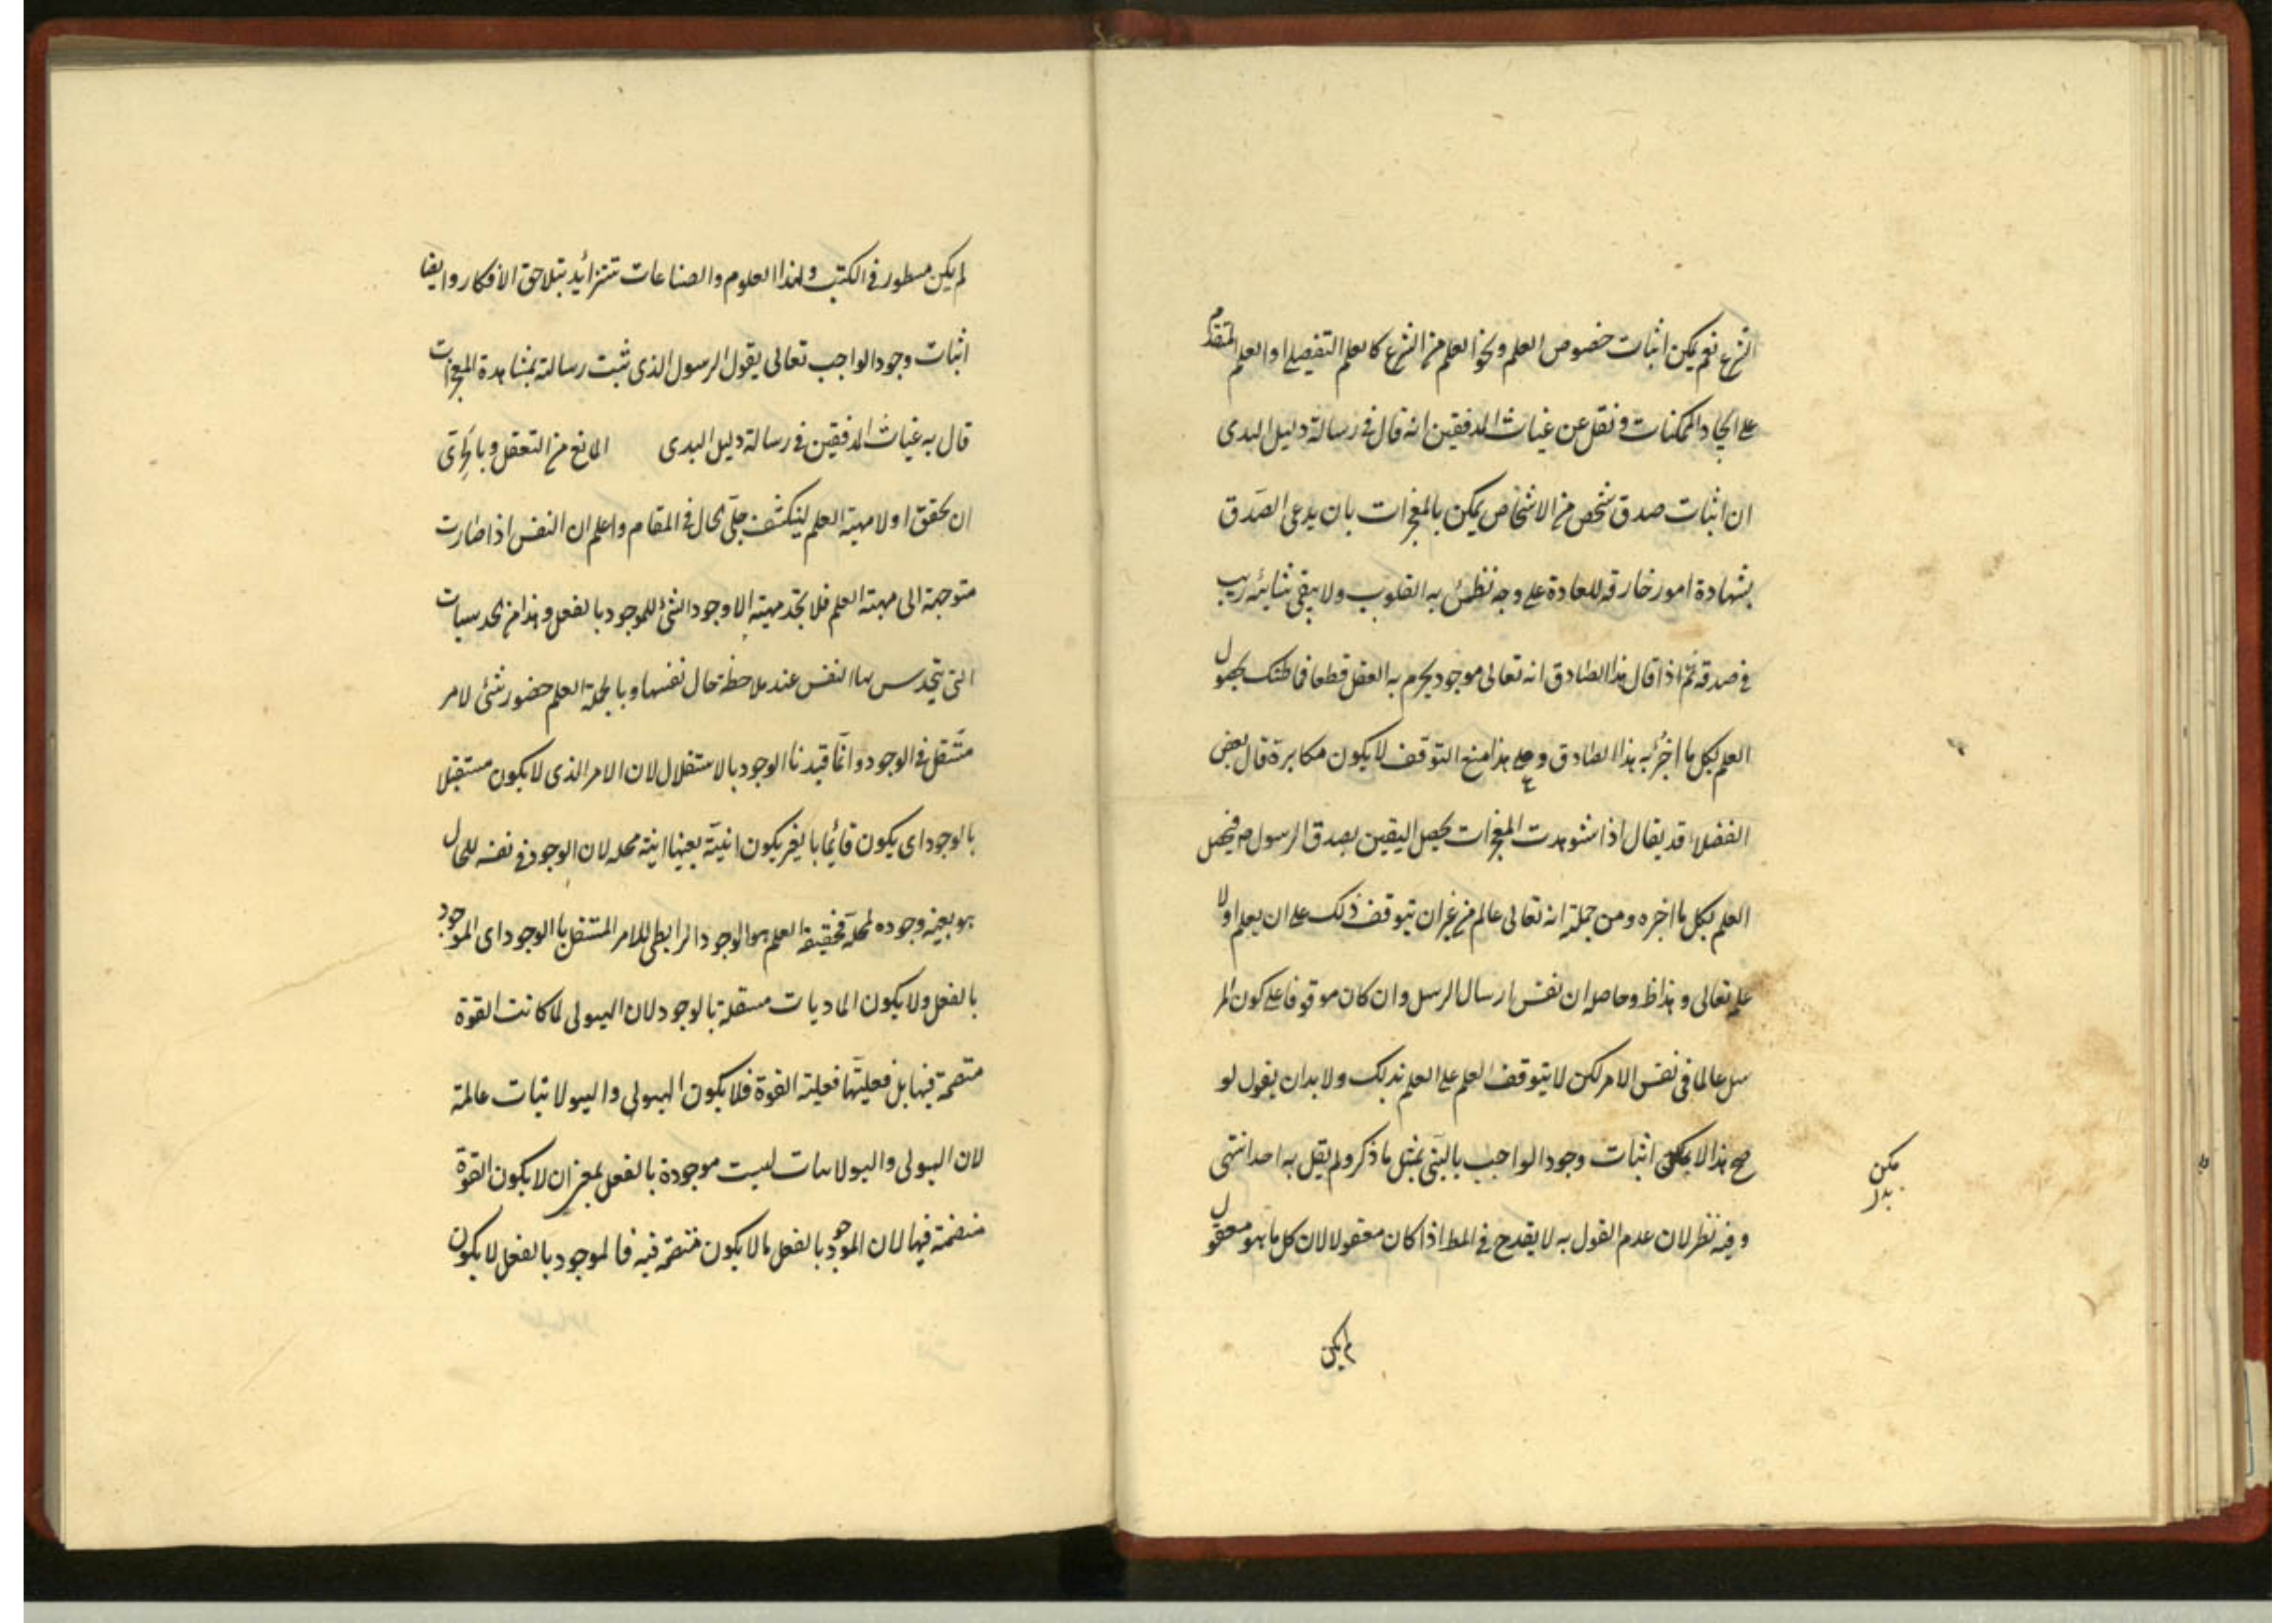 الشرع نعم يمكن اثبات خصوص العلم ونحو العلم من الشرع كالعلم التفصيلى او العلم المتقدم
على ايجاد الممكنات ونقل عن غياث المدققين انه قال فى رسالة دليل الهدى
ان اثبات صدق شخص من الاشخاص يمكن بالمعجزات بان يدعى الصدق
بشهادة امور خارقه للعادة على وجه تطمئن به القلوب ولا يبقى شائبة ريب
فى صدقه ثم اذا قال هذا الصادق انه تعالى موجود يجزم به العقل قطعا فما ظنك بحصول
العلم بكل ما اخبر به هذا الصادق وعلى هذا منع التوقف لا يكون مكابرة قال بعض
الفضلاء قد يقال اذا شوهدت المعجزات يحصل اليقين بصدق الرسول ص فيحصل
العلم بكل ما اخبره ومن جملته انه تعالى عالم من غير ان يتوقف ذلك على ان يعلم اولا
علمه تعالى وهذا ظ وحاصله ان نفس ارسال الرسل وان كان موقوفا على كون المر
سل عالما فى نفس الامر لكن لا يتوقف العلم على العلم بذلك ولا بد ان يقول لو
صح هذا لا يمكن اثبات وجود الواجب بالنبى بمثل ما ذكر ولم يقل به احد انتهى
يمكن
بدل
وفيه نظر لان عدم القول به لا يقدح فى المط اذا كان معقولا لان كل ما هو معقول
لم يكن
لم يكن مسطور فى الكتب ولهذا العلوم والصناعات تتزائد بتلاحق الافكار وايضا
اثبات وجود الواجب تعالى يقول الرسول الذى ثبت رسالته بمشاهدة المعجزات
قال به غياث المدققين فى رسالة دليل الهدى المانع من التعقل وبالحرى
ان نحقق اولا مهية العلم لينكشف جلى الحال فى المقام واعلم ان النفس اذا صارت
متوجهة الى مهية العلم فلا تجد مهيته الا وجود الشئ للموجود بالفعل وهذا من الحدسيات
التى يتحدس بها النفس عند ملاحظة حال نفسها وبالجملة العلم حضور شئ لامر
مستقل فى الوجود وانما قيدنا الوجود بالاستقلال لان الامر الذى لا يكون مستقلا
بالوجود اى يكون قائما بالغير يكون انيته بعينها انية محله لان الوجود فى نفسه للحال
هو بعينه وجوده لمحله فحقيقة العلم هو الوجود الرابطى للامر المستقل بالوجود اى الموجود
بالفعل ولا يكون الماديات مستقلة بالوجود لان الهيولى لما كانت القوة
متضمنة فيها بل فعليتها فعلية القوة فلا يكون الهيولى والهيولانيات عالمة
لان الهيولى والهيولانيات ليست موجودة بالفعل بمعنى ان لا يكون القوة
متضمنة فيها لان الموجود بالفعل ما لا يكون متضمنه فيه فالموجود بالفعل لا يكون